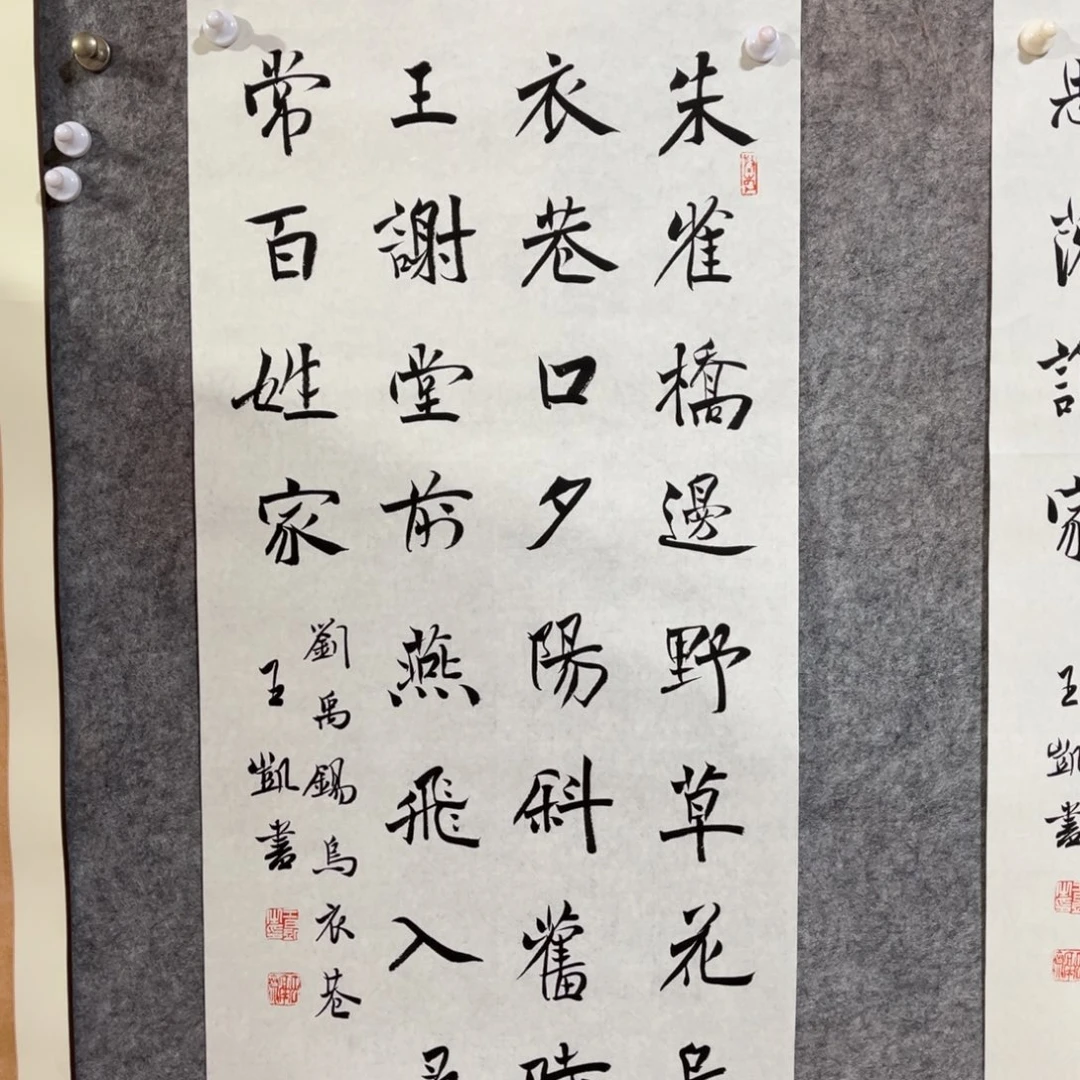 朱雀橋邊野草花
衣巷口夕陽斜舊
王謝堂前燕飛入
常百姓家
劉禹錫烏衣巷
王凱書
王凱書